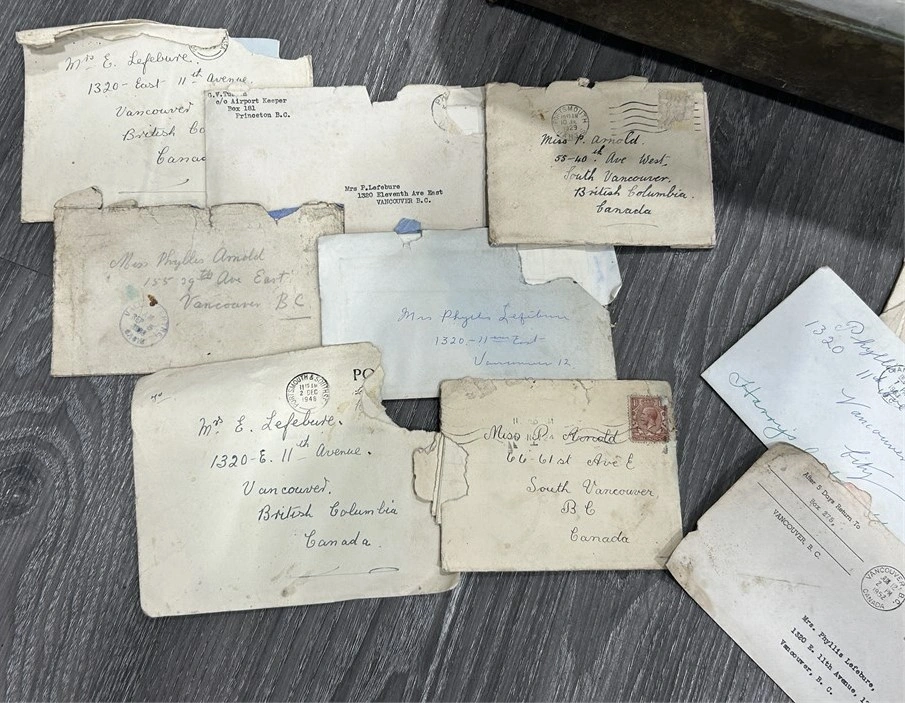 Mrs E. Lefebure.
1320-East 11th Avenue.
Vancouver
British Co
Canad
c/o Airport Keeper
Box 181
Princeton B.C.
Mrs P.Lefebure
1320 Eleventh Ave East
VANCOUVER B.C.
1929
Miss P. Arnold.
55-40th Ave West.
South Vancouver.
British Columbia.
Canada
Miss Phyllis Arnold
155 29th Ave East
Vancouver B.C
Mrs Phyllis Lefebure
1320-11th East
Vancouver 12
PORTSMOUTH & SOUTHSEA
2 DEC
1946
PO
Mrs E. Lefebure.
1320-E. 11th Avenue.
Vancouver.
British Columbia
Canada.
Miss P. Arnold
66-61st Ave E
South Vancouver
B C
Canada
Phyllis
1320 11th
Vancouver
City
After 5 Days Return To
Box 276,
VANCOUVER, B. C.
VANCOUVER, B.C.
2 PM
1952
CANADA
Mrs. Phyllis Lefebure,
1320 E. 11th Avenue,
Vancouver, B. C.